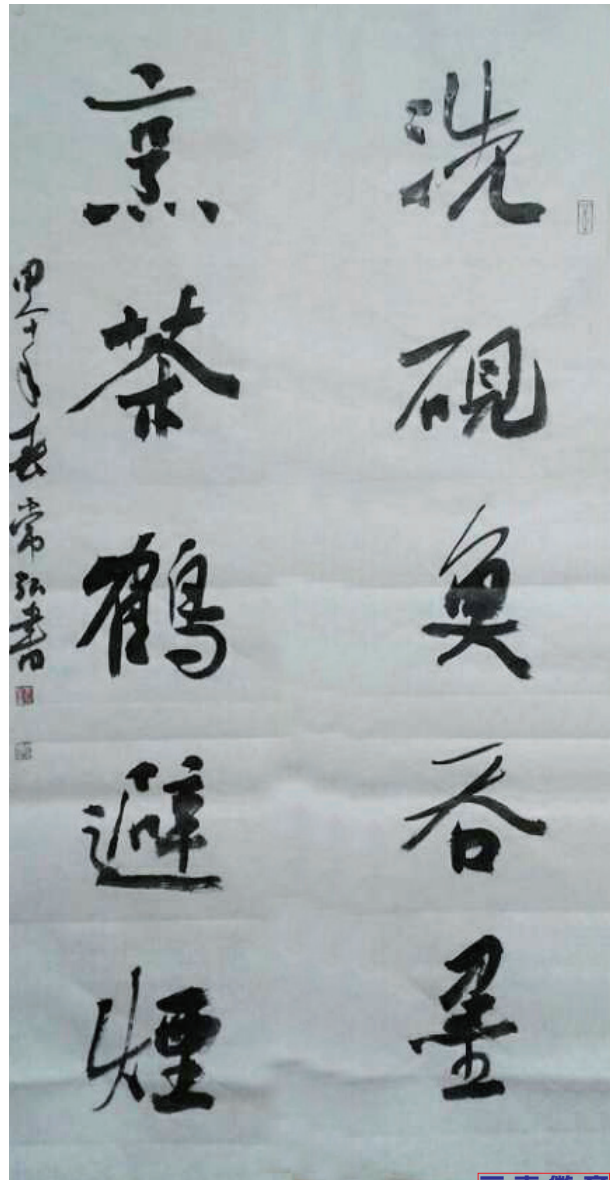 洗硯魚吞墨
烹茶鶴避煙
甲午年春常弘書